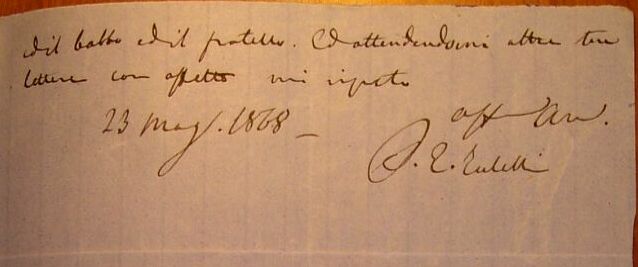 ed il babbo ed il fratello. Ed attendendomi altre tue
lettere con affetto mi ripeto
23 Mag. 1868 –
aff Am.
P. E.